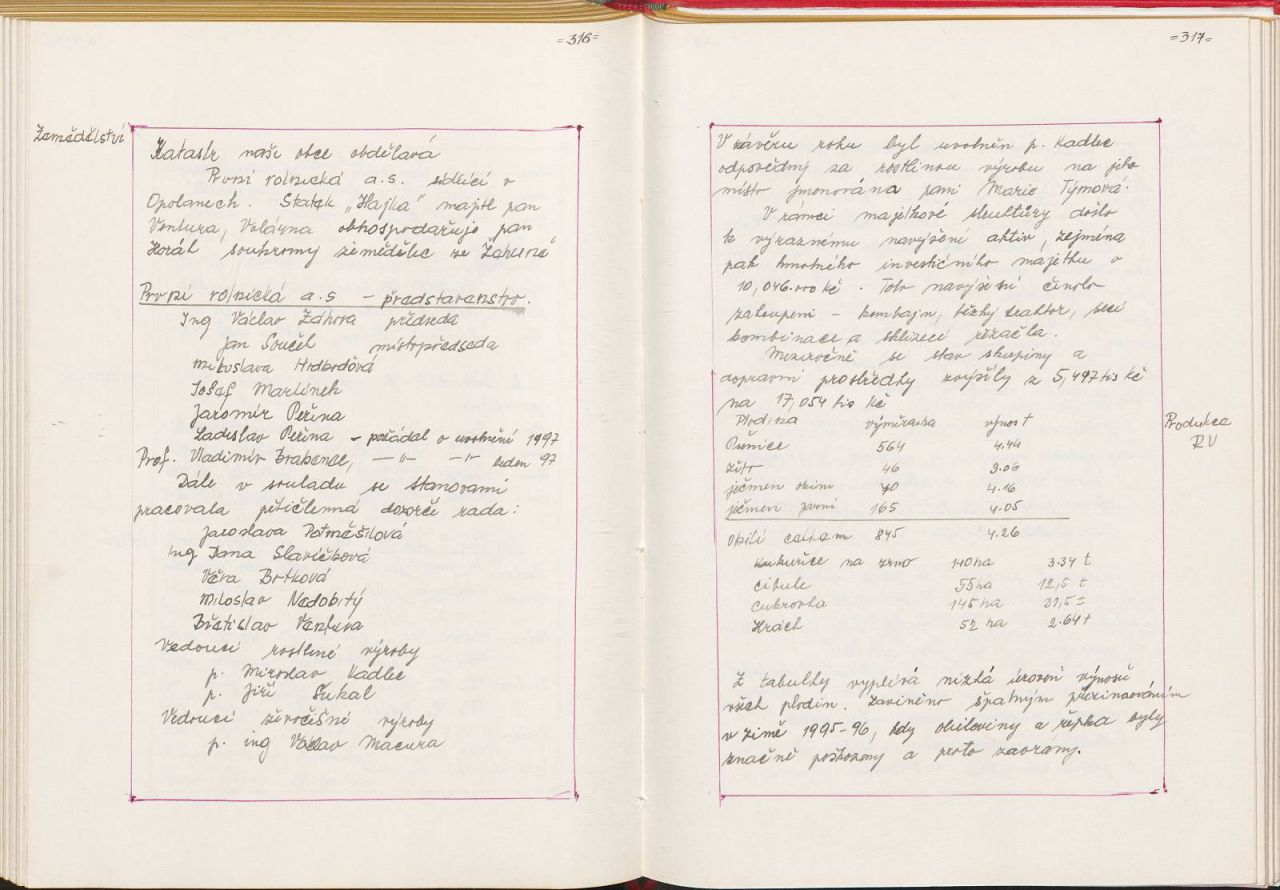 =316=
Zemědělství
Katastr naší obce obdělává
První rolnická a.s. sídlící v
Opolanech. Statek „Hajka" majitel pan
Ventura, Volárna obhospodařuje pan
Horák soukromý zemědělec ze
První rolnická a.s – představenstvo.
Ing Václav Záhora předseda
Jan Souček místopředseda
Miloslava
Josef Martínek
Jaromír Peřina
Ladislav Peřina – požádal o uvolnění 1997
Prof. Vladimír Brabenec, –"– –"– leden 97
Dále v souladu se stanovami
pracovala pětičlenná dozorčí rada:
Jaroslava Potměšilová
ing Jana Slavíčková
Věra Bртková
Miloslav Nedobitý
Břetislav Ventura
Vedoucí rostliné výroby
p. Miroslav Kadlec
p. Jiří Sukal
Vedoucí živočišné výroby
p. ing Václav Macura
=317=
V závěru roku byl uvolněn p. Kadlec
odpovědný za rostlinou výrobu na jeho
místo jmenována paní Marie Týmová.
V rámci majetkové struktury došlo
k výraznému navýšení aktiv, zejména
pak hmotného investičního majetku o
10,046.000 kč. Toto navýšení činilo
zakoupení – kombajn, těžký traktor, secí
kombinace a sklízecí řezačka.
Meziročně se stav skupiny a
dopravní prostředky zvýšily z 5,497 tis kč
na 17,054 tis kč
Plodina výměra ha výnos t
Pšenice 564 4.44
žito 46 3.06
ječmen ozim 70 4.16
ječmen jarní 165 4.05
obilí celkem 845 4.26
Kukuřice na zrno 140 ha 3.34 t
cibule 55 ha 12,5 t
cukrovka 145 ha 31,5 t
Hrách 52 ha 2.64 t
Produkce
RV
Z tabulky vyplívá nízká úroveň výnosů
všech plodin. Zaviněno špatným přezimováním
v zimě 1995-96, kdy obiloviny a řepka byly
značně poškozeny a proto zaorány.